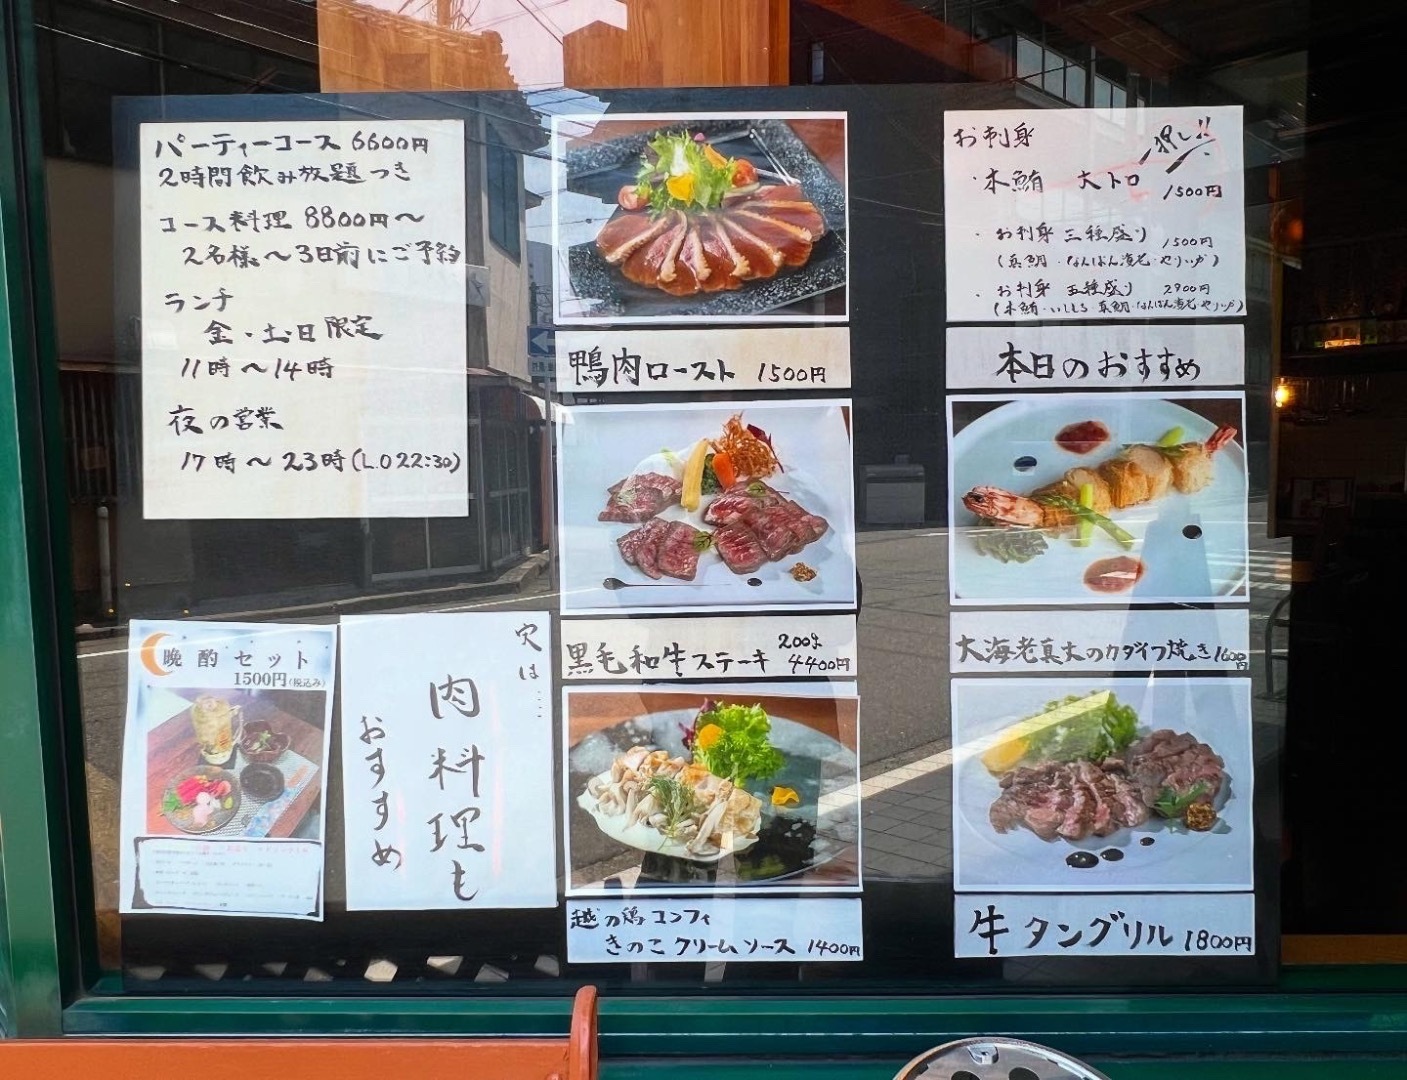 パーティーコース 6600円
2時間飲み放題つき
コース料理 8800円〜
2名様〜3日前にご予約
ランチ
金・土・日限定
11時〜14時
夜の営業
17時〜23時(L.O 22:30)
晩酌セット
1500円(税込み)
穴は....
肉料理も
おすすめ
鴨肉ロースト 1500円
黒毛和牛ステーキ 200g 4400円
越の鶏コンフィ
きのこクリームソース 1400円
お刺身
押し!!
・本鮪 大トロ 1500円
・お刺身三種盛り 1500円
(真鯛・なんばん海老・やりいか)
・お刺身五種盛り 2900円
(本鮪・いしもち 真鯛・なんばん海老 やりいか)
本日のおすすめ
大海老真丈のカダイフ焼き 1600円
牛タングリル 1800円